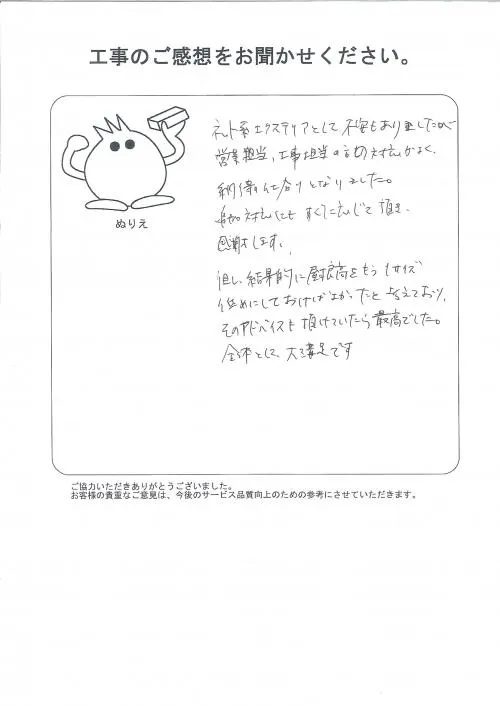 工事のご感想をお聞かせください。
ネット系エクステリアとして不安もありましたが
営業担当、工事担当の方の対応がよく、
納得の仕上りとなりました。
追加対応にもすぐに応じて頂き、
感謝します。
但し、結果的に 高をもう1サイズ
低めにしておけばよかったと考えており、
そのアドバイスも頂けていたら最高でした。
全体として、大満足です
ぬりえ
ご協力いただきありがとうございました。
お客様の貴重なご意見は、今後のサービス品質向上のための参考にさせていただきます。